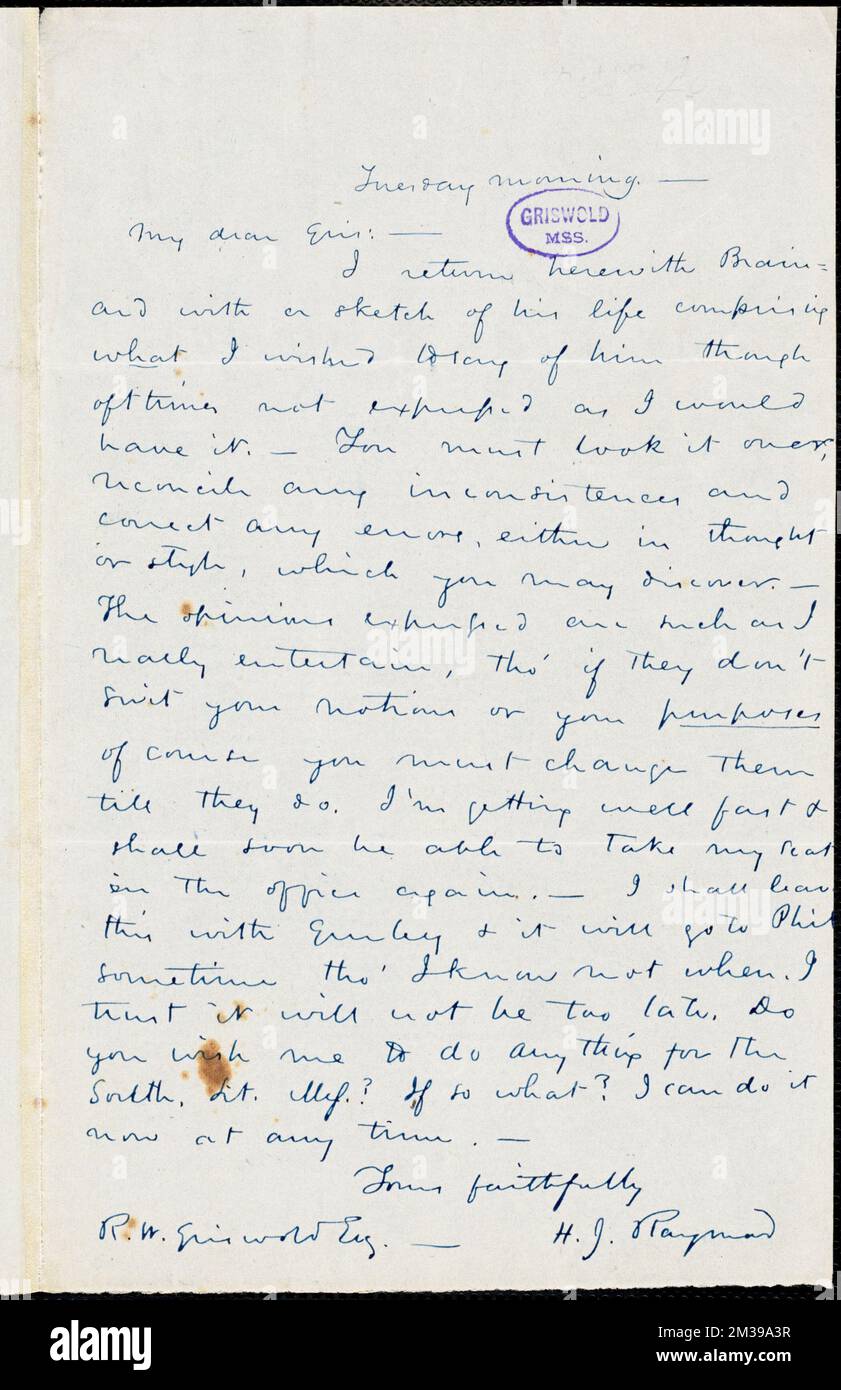 Tuesday morning. —
GRISWOLD
MSS.
My dear Gris: —
I return herewith Brain=
ard with a sketch of his life comprising
what I wished to say of him though
ofttimes not expressed as I would
have it. — You must look it over,
reconcile any inconsistences and
correct any errors, either in thought
or style, which you may discover. —
The opinions expressed are such as I
really entertain, tho' if they don't
suit your notions or your purposes
of course you must change them
till they do. I'm getting well fast &
shall soon be able to take my seat
in the office again. — I shall leav
this with Greeley & it will go to Phil
sometime tho' I know not when. I
trust it will not be too late. Do
you wish me to do anything for the
South. Lit. Mess.? If so what? I can do it
now at any time. —
Yours faithfully
R. W. Griswold Esq. — H. J. Raymond
alamy
alamy
Image ID: 2M39A3R
www.alamy.com